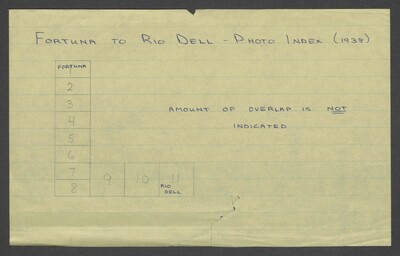 FORTUNA TO RIO DELL - PHOTO INDEX (1938)
FORTUNA
1
2
3
4
5
6
7
8
9
10
11
RIO
DELL
AMOUNT OF OVERLAP IS NOT
INDICATED